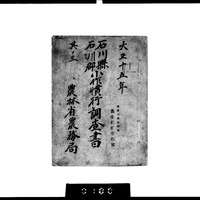 大正十五年
石川縣
石川郡小作慣行調査書
其ノ三
農林省農務局
0100